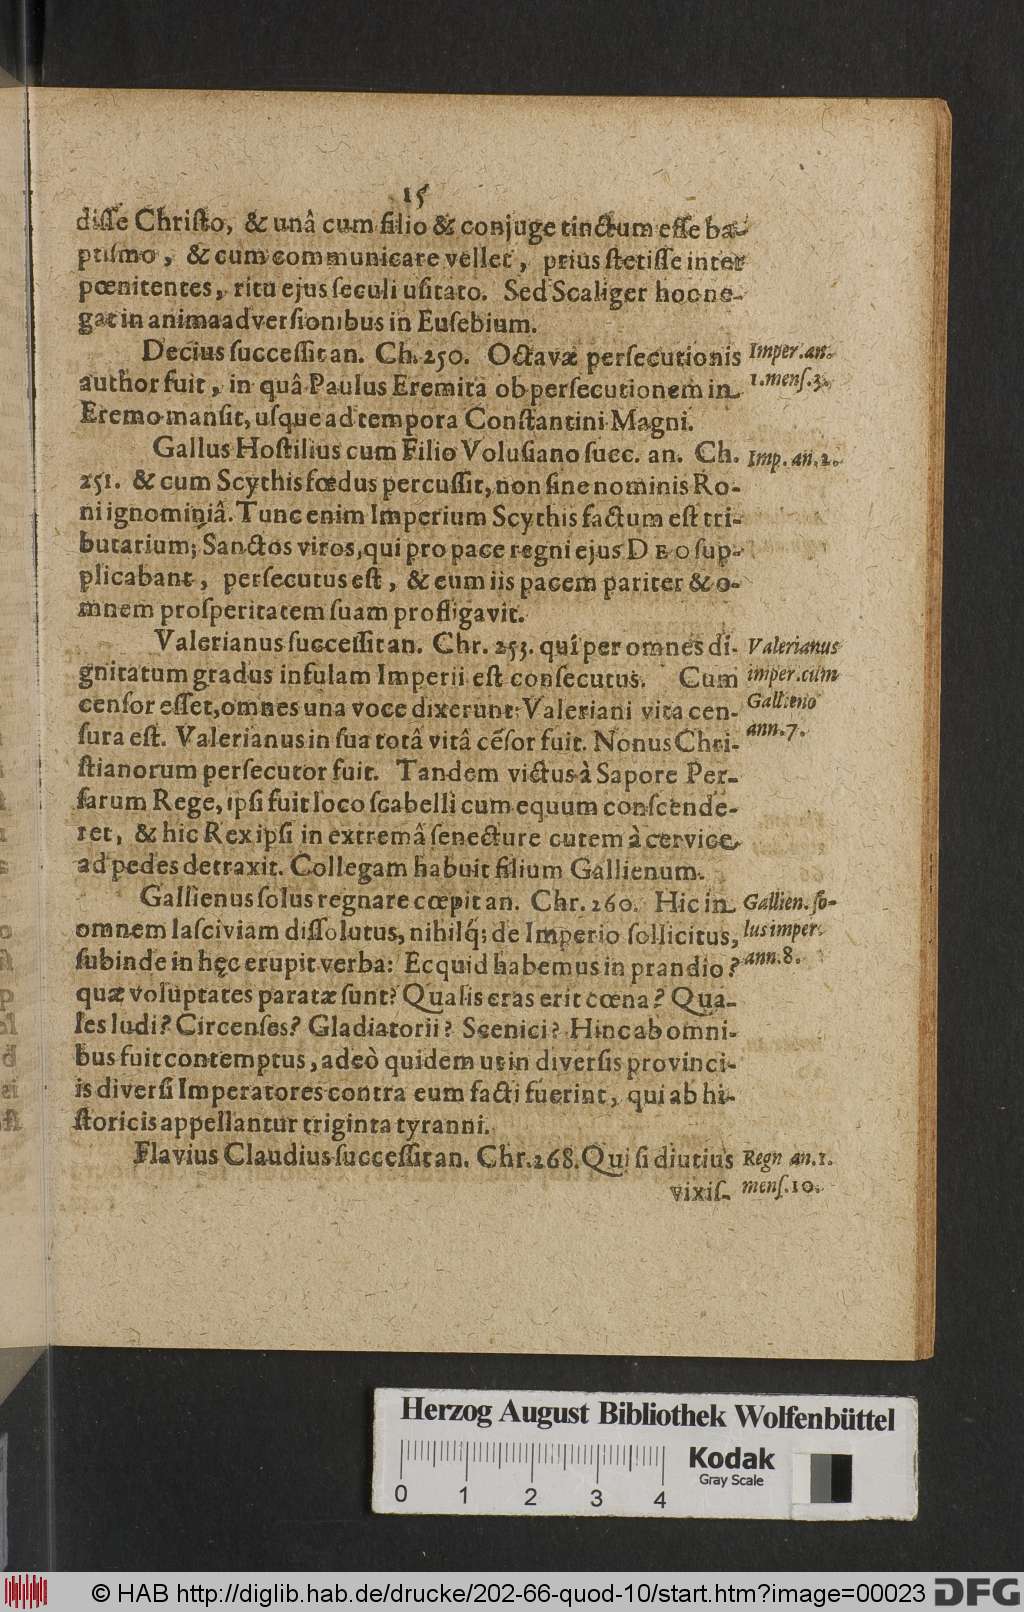 15
diſſe Chriſto, & unâ cum filio & conjuge tinctum eſſe ba-
ptiſmo, & cum communicare vellet, prius ſtetiſſe inter
pœnitentes, ritu ejus ſeculi uſitato. Sed Scaliger hoc ne-
gat in animaadverſionibus in Euſebium.
Decius ſucceſſit an. Ch. 250. Octavæ perſecutionis
Imper. an.
author fuit, in quâ Paulus Eremita ob perſecutionem in
1. menſ. 3.
Eremo manſit, uſque ad tempora Conſtantini Magni.
Gallus Hoſtilius cum Filio Voluſiano ſucc. an. Ch.
Imp. an. 2.
251. & cum Scythis fœdus percuſſit, non ſine nominis Ro-
ni ignominiâ. Tunc enim Imperium Scythis factum eſt tri-
butarium; Sanctos viros, qui pro pace regni ejus DEO ſup-
plicabant, perſecutus eſt, & cum iis pacem pariter & o-
mnem proſperitatem ſuam profligavit.
Valerianus ſucceſſit an. Chr. 253. qui per omnes di-
Valerianus
gnitatum gradus infulam Imperii eſt conſecutus. Cum
imper. cum
cenſor eſſet, omnes una voce dixerunt: Valeriani vita cen-
Gallieno
ſura eſt. Valerianus in ſua totâ vitâ cēſor fuit. Nonus Chri-
ann. 7.
ſtianorum perſecutor fuit. Tandem victus à Sapore Per-
ſarum Rege, ipſi fuit loco ſcabelli cum equum conſcende-
ret, & hic Rex ipſi in extremâ ſenecture cutem à cervice
ad pedes detraxit. Collegam habuit filium Gallienum.
Gallienus ſolus regnare cœpit an. Chr. 260. Hic in
Gallien. ſo-
omnem laſciviam diſſolutus, nihilq́; de Imperio ſollicitus,
lus imper.
ſubinde in hęc erupit verba: Ecquid habemus in prandio?
ann. 8.
quæ voluptates paratæ ſunt? Qualis cras erit cœna? Qua-
les ludi? Circenſes? Gladiatorii? Scenici? Hinc ab omni-
bus fuit contemptus, adeò quidem ut in diverſis provinci-
is diverſi Imperatores contra eum facti fuerint, qui ab hi-
ſtoricis appellantur triginta tyranni.
Flavius Claudius ſucceſſit an. Chr. 268. Qui ſi diutius
Regn an. 1.
vixiſ-
menſ. 10.
Herzog August Bibliothek Wolfenbüttel
Kodak
Gray Scale
0 1 2 3 4
© HAB http://diglib.hab.de/drucke/202-66-quod-10/start.htm?image=00023
DFG